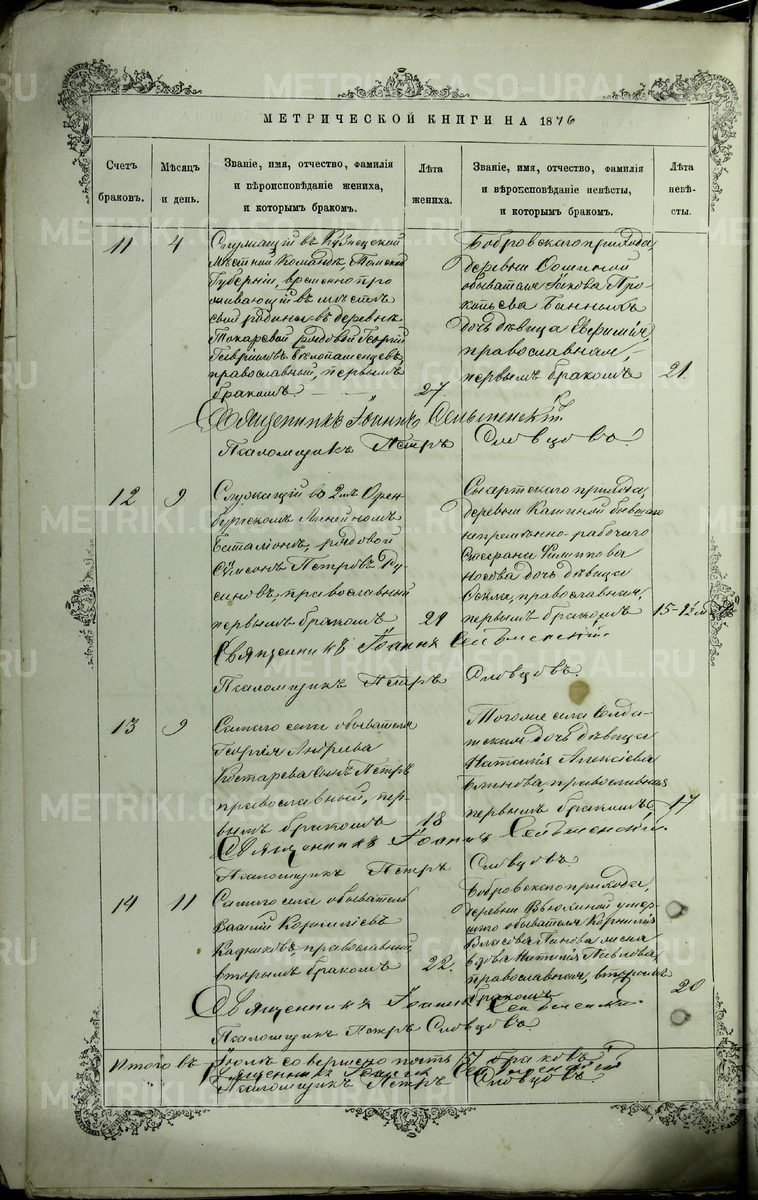 МЕТРИЧЕСКОЙ КНИГИ НА 1876
Счетъ браковъ.
Мѣсяцъ и день.
Званіе, имя, отчество, фамилія
и вѣроисповѣданіе жениха,
и которымъ бракомъ.
Лѣта жениха.
Званіе, имя, отчество, фамилія
и вѣроисповѣданіе невѣсты,
и которымъ бракомъ.
Лѣта невѣсты.
11
4
Служащій въ Кузнецкой
мѣстной Командѣ, Томской
Губерніи, временно про
живающій въ мѣстѣ
своей родины въ деревнѣ
Токаревой рядовой Георгій
Гавріиловъ Бѣлопашенцевъ,
православный, первымъ
бракомъ
27.
Бобровскаго прихода
деревни
обывателя Іакова Про
копьева Банныхъ
дочь дѣвица Евфимія,
православная,
первымъ бракомъ
21.
Священникъ Іоаннъ
Псаломщикъ Петръ Словцовъ
12
9
Служащій во 2мъ Орен
бургскомъ Линейномъ
Баталіонѣ, рядовой
Сѵмеонъ Петровъ Ру
синовъ, православный
первымъ бракомъ
Сысертскаго прихода,
деревни Кашиной бывшаго
непремѣнно-рабочаго
Стефана Филиппова
Носова дочь дѣвица
православная,
первымъ бракомъ
Священникъ Іоаннъ
Псаломщикъ Петръ Словцовъ.
13
9
Самаго села обывателя
Георгія Андреева
Костарева сынъ Петръ
православный, пер
вымъ бракомъ
18
Тогоже села Солда
тская дочь дѣвица
Наталія Алексіева
Блинова, православная
первымъ бракомъ
17
Священникъ Іоаннъ
Псаломщикъ Петръ Словцовъ.
14
11
Самаго села обыватель
Корниліевъ
Кадниковъ, православный
вторымъ бракомъ
22.
Бобровскаго прихода,
деревни Вьюхиной умер
шаго обывателя Корнилія
Власова жена
вдова Наталія Павлова,
православная, вторымъ
бракомъ
20
Священникъ Іоаннъ
Псаломщикъ Петръ Словцовъ
Итого въ Іюлѣ совершено пять 5 браковъ
Священникъ Іоаннъ
Псаломщикъ Петръ Словцовъ.
METRIKI.GASO-URAL.RU